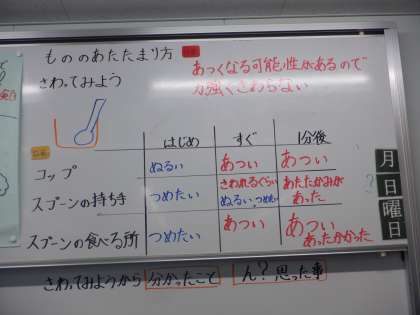 もののあたたまり方
さわってみよう
あつくなる可能性があるので
力強くさわらない
はじめ すぐ 1分後
コップ ぬるい あつい あつい
スプーンの持ち手 つめたい さわれるくらい ぬるい、つめたい あたたかみがあった
スプーンの食べる所 つめたい あつい あつい あったかかった
月
日
曜
日
さわってみようから 分かったこと ん?思った事